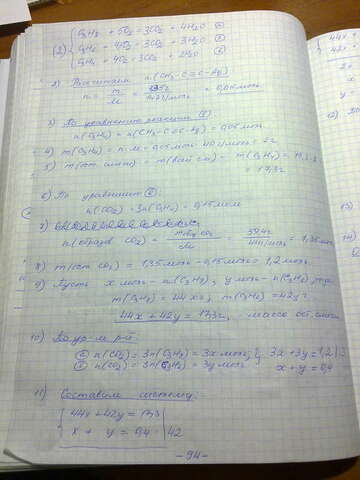 (2) { C3H8 + 5O2 = 3CO2 + 4H2O а
C3H6 + O2 = 3CO2 + 3H2O б
C3H4 + 4O2 = 3CO2 + 2H2O в
2) Рассчитаем n(CH3-C≡C-Ag)
n = m/M = / 147г/моль = 0,05моль
3) По уравнению реакции (1)
n(C3H4) = n(CH3-C≡C-Ag) = 0,05моль
4) m(C3H4) = n·M = 0,05моль·40г/моль = 2г
5) m(ост смеси) = m(всей см) - m(C3H4) = 19,3-2
= 17,3г
6) По уравнению в:
n(CO2) = 3n(C3H4) = 0,15моль
7)
n(образов CO2) = m CO2 / M = 59,4г / 44г/моль = 1,35моль
8) n(ост CO2) = 1,35моль - 0,15моль = 1,2моль
9) Пусть x моль - n(C3H8), y моль - n(C3H6), то
m(C3H8) = 44x г, m(C3H6) = 42y г
44x + 42y = 17,3г, масса ост. смеси
10) По ур-м р-й
а n(CO2) = 3n(C3H8) = 3x моль; } 3x + 3y = 1,2 | :3
б n(CO2) = 3n(C3H6) = 3y моль x + y = 0,4
11) Составим систему:
{ 44x + 42y = 17,3
x + y = 0,4 | 42
-94-